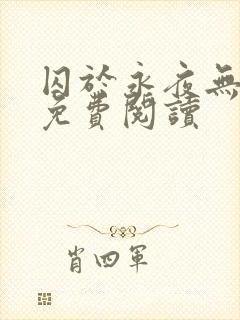 囚於永夜無
免費閱讀
肖四軍